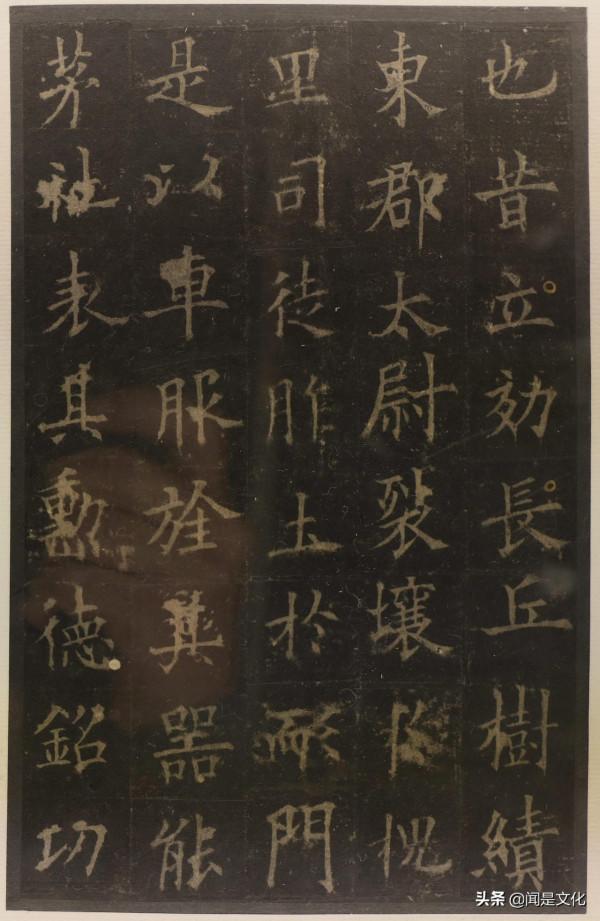 也昔立効長丘樹績
東郡太尉裂壤於槐
里司徒胙土於耏門
是以車服旌其器能
茅社表其勳德銘功
头条 @闻是文化